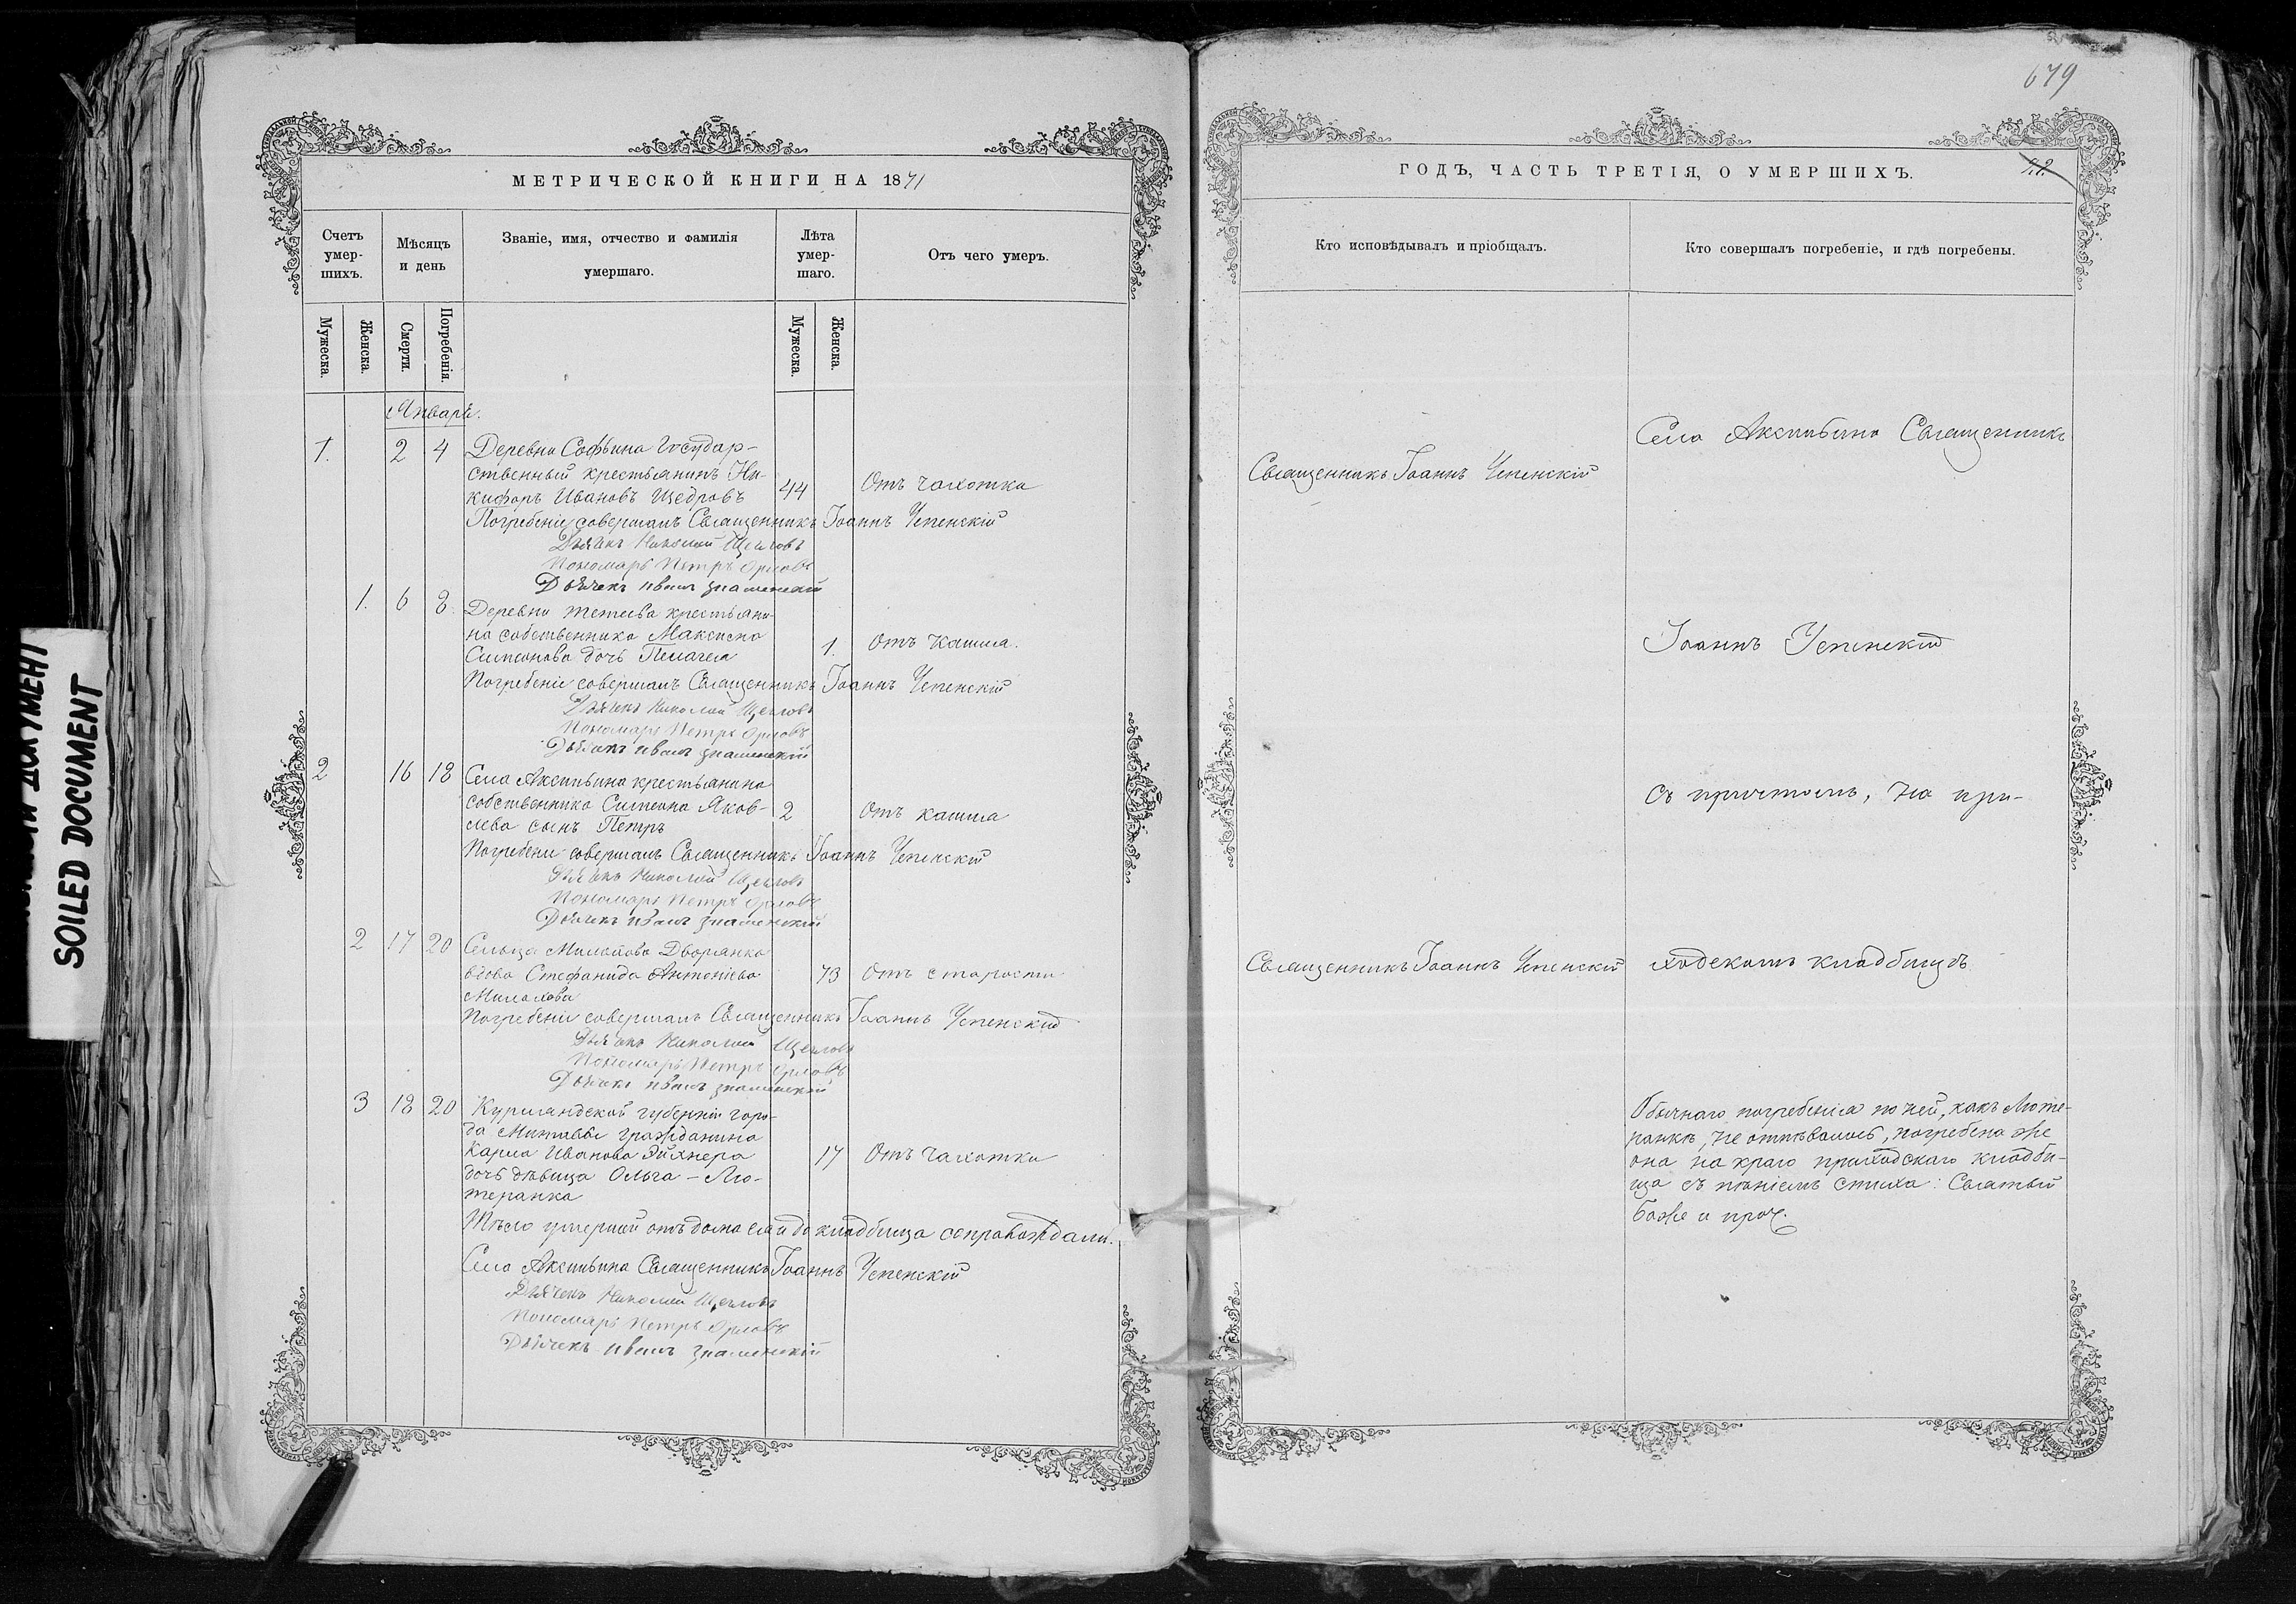 МЕТРИЧЕСКОЙ КНИГИ НА 1871
Счетъ умер-шихъ.
Мѣсяцъ и день
Званіе, имя, отчество и фамилія умершаго.
Лѣта умер-шаго.
Отъ чего умеръ.
Мужеска.
Женска.
Смерти.
Погребенія.
Мужеска.
Женска.
Январь.
1. 2 4 Деревни Софьина Государ-
ственный крестьянинъ Ни-
кифоръ Ивановъ Щедровъ 44 Отъ чахотки
Погребеніе совершалъ Священникъ Іоаннъ Успенскій
Дьячекъ Николай Щегловъ
Пономарь Петръ Орловъ
Дьячекъ Иванъ Знаменскій
1. 6 8 Деревни крестьяни-
на собственника Максима
Симеонова дочь Пелагея 1. Отъ кашля.
Погребеніе совершалъ Священникъ Іоаннъ Успенскій
Дьячекъ Николай Щегловъ
Пономарь Петръ Орловъ
Дьячекъ Иванъ Знаменскій
2 16 18 Села Аксиньина крестьянина
собственника Симеона Яков-
лева сынъ Петръ 2 Отъ кашля
Погребеніе совершалъ Священникъ Іоаннъ Успенскій
Дьячекъ Николай Щегловъ
Пономарь Петръ Орловъ
Дьячекъ Иванъ Знаменскій
2 17 20 Сельца Дворянка
вдова Стефанида Антоніева 73 Отъ старости
Погребеніе совершалъ Священникъ Іоаннъ Успенскій
Дьячекъ Николай Щегловъ
Пономарь Петръ Орловъ
Дьячекъ Иванъ Знаменскій
3 18 20 Курляндской губерніи горо-
да Митавы гражданина
Карла Иванова Эйхнера 17 Отъ чахотки
дочь дѣвица Ольга – Лю-
теранка
Тѣло умершей отъ дома ея и до кладбища сопровождали.
Села Аксиньина Священникъ Іоаннъ Успенскій
Дьячекъ Николай Щегловъ
Пономарь Петръ Орловъ
Дьячекъ Иванъ Знаменскій
679
ГОДЪ, ЧАСТЬ ТРЕТІЯ, О УМЕРШИХЪ.
Кто исповѣдывалъ и пріобщалъ.
Кто совершалъ погребеніе, и гдѣ погребены.
Села Аксиньина Священникъ
Священникъ Іоаннъ Успенскій
Іоаннъ Успенскій
съ причтомъ, на при-
Священникъ Іоаннъ Успенскій
ходскомъ кладбищѣ
Обычнаго погребенія по ней, какъ Люте-
ранкѣ, не отпѣвалось, погребена же
она на краю приходскаго кладби-
ща съ пѣніемъ стиха: Святый
Боже и проч.
ДОКУМЕНТ
SOILED DOCUMENT